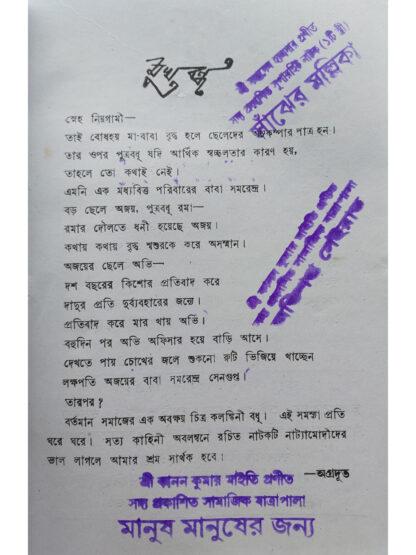 মুখবন্ধ
স্নেহ নিম্নগামী—
তাই বোধহয় মা-বাবা বৃদ্ধ হলে ছেলেদের পাত্র হন।
তার ওপর পুত্রবধূ যদি আর্থিক স্বচ্ছলতার কারণ হয়,
তাহলে তো কথাই নেই।
এমনি এক মধ্যবিত্ত পরিবারের বাবা সমরেন্দ্র।
বড় ছেলে অজয়, পুত্রবধূ রমা—
রমার দৌলতে ধনী হয়েছে অজয়।
কথায় কথায় বৃদ্ধ শ্বশুরকে করে অসম্মান।
অজয়ের ছেলে অভি—
দশ বছরের কিশোর প্রতিবাদ করে
দাদুর প্রতি দুর্ব্যবহারের জন্যে।
প্রতিবাদ করে মার খায় অভি।
বহুদিন পর অভি অফিসার হয়ে বাড়ি আসে।
দেখতে পায় চোখের জলে শুকনো রুটি ভিজিয়ে খাচ্ছেন
লক্ষপতি অজয়ের বাবা সমরেন্দ্র সেনগুপ্ত।
তারপর?
বর্তমান সমাজের এক অবক্ষয় চিত্র কলঙ্কিনী বধূ। এই সমস্যা প্রতি
ঘরে ঘরে। সত্য কাহিনী অবলম্বনে রচিত নাটকটি নাট্যামোদীদের
ভাল লাগলে আমার শ্রম সার্থক হবে।
—অগ্রদূত
শ্রী কানন কুমার মাইতি প্রণীত
সদ্য প্রকাশিত সামাজিক যাত্রাপালা
মানুষ মানুষের জন্য
সাঁঝের মল্লিকা